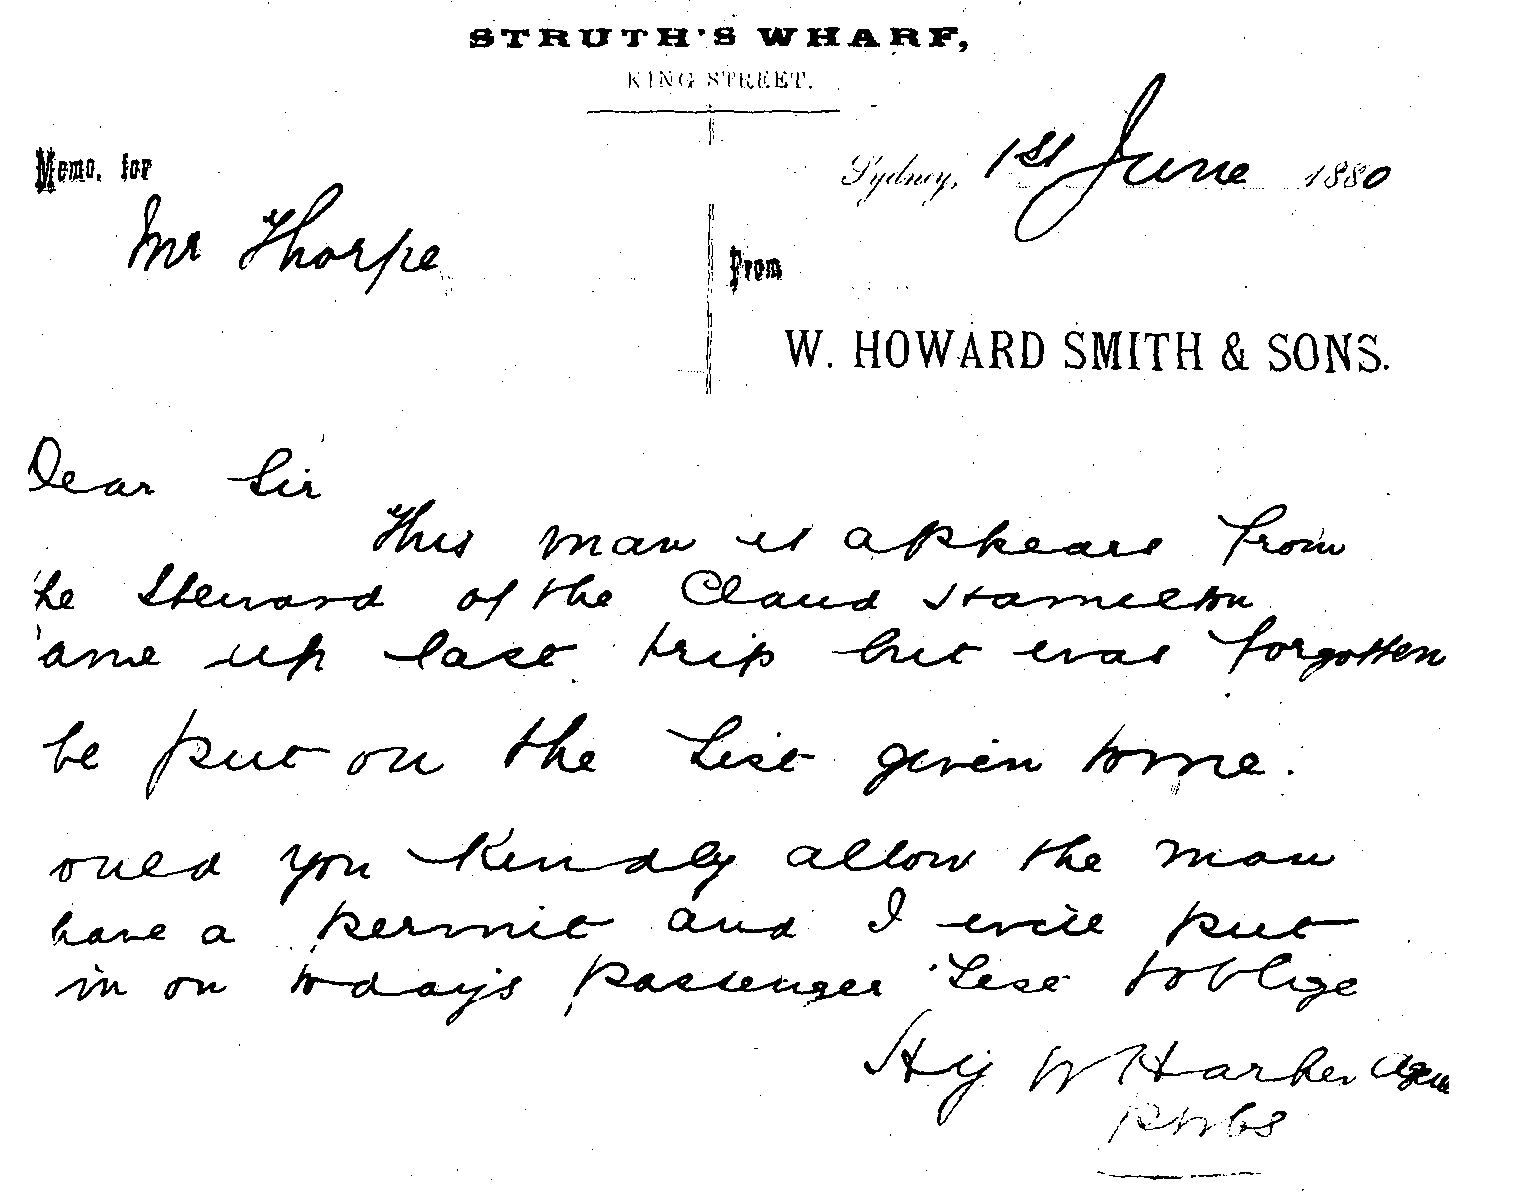 STRUTH'S WHARF,
KING STREET.
Memo. for
Sydney, 1st June 1880
Mr Thorpe
From
W. HOWARD SMITH & SONS.
Dear Sir
This man it appears from
he Steward of the Claud Hamilton
ame up last trip but was forgotten
be put on the List given to me.
ould you kindly allow the man
have a permit and I will put
in on today's passenger List to oblige
Hy W Harker Agen